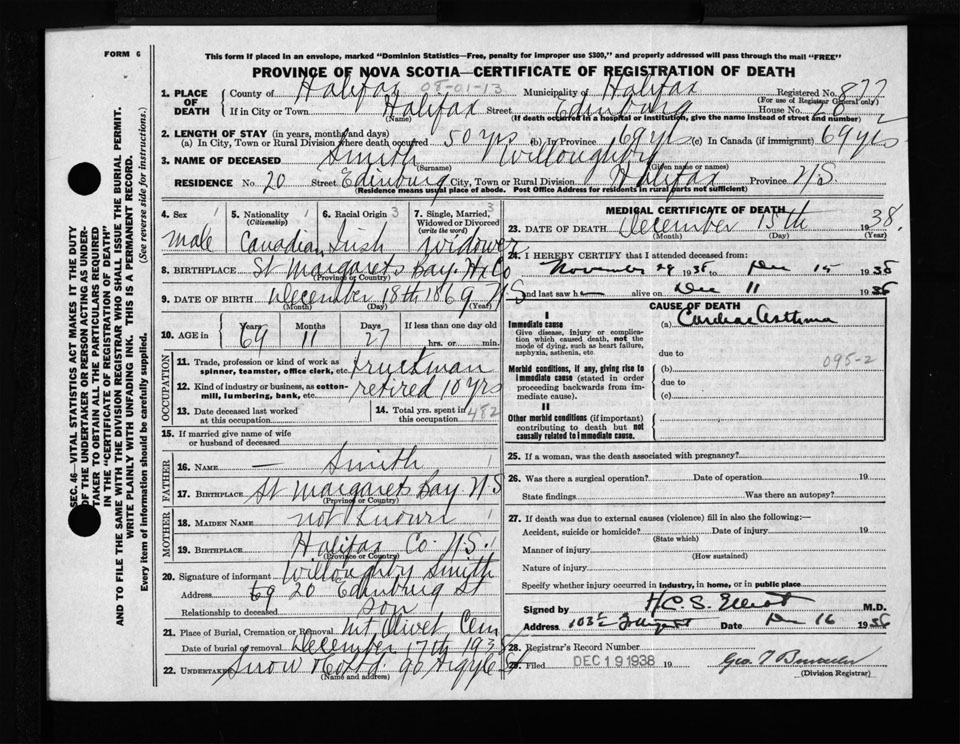 FORM 6
This form if placed in an envelope, marked "Dominion Statistics—Free, penalty for improper use $300," and properly addressed will pass through the mail "FREE"
PROVINCE OF NOVA SCOTIA—CERTIFICATE OF REGISTRATION OF DEATH
08-01-13
1. PLACE OF DEATH County of Halifax Municipality of Halifax Registered No. 877
(For use of Registrar General only)
If in City or Town Halifax Street Edinburg House No. 20
(Name) (If death occurred in a hospital or institution, give the name instead of street and number)
2. LENGTH OF STAY (in years, months and days)
(a) In City, Town or Rural Division where death occurred 50 yrs (b) In Province 69 yrs (c) In Canada (if immigrant) 69 yrs
3. NAME OF DECEASED Smith Willoughby
(Surname) (Given name or names)
RESIDENCE No. 20 Street Edinburg City, Town or Rural Division Halifax Province N.S.
(Residence means usual place of abode. Post Office Address for residents in rural parts not sufficient)
4. Sex Male
5. Nationality (Citizenship) Canadian
6. Racial Origin Irish
7. Single, Married, Widowed or Divorced (write the word) Widower
8. BIRTHPLACE St Margarets Bay. Hx Co
(Province or Country)
N S
9. DATE OF BIRTH December 18th 1869
(Month) (Day) (Year)
10. AGE in Years Months Days If less than one day old
69 11 27 hrs. or min.
OCCUPATION
11. Trade, profession or kind of work as spinner, teamster, office clerk, etc. Truckman
12. Kind of industry or business, as cotton-mill, lumbering, bank, etc. retired 10 yrs
13. Date deceased last worked at this occupation
14. Total yrs. spent in this occupation 482
15. If married give name of wife or husband of deceased
FATHER
16. NAME — Smith
17. BIRTHPLACE St Margarets Bay N S
(Province or Country)
MOTHER
18. MAIDEN NAME not Known
19. BIRTHPLACE Halifax Co. N.S.
(Province or Country)
20. Signature of informant Willoughby Smith
Address 20 Edinburg St
Relationship to deceased son
21. Place of Burial, Cremation or Removal Mt Olivet Cem
Date of burial or removal December 17th 1938
22. UNDERTAKER Snow & Co Ltd. 90 Argyle St
(Name and address)
MEDICAL CERTIFICATE OF DEATH
23. DATE OF DEATH December 15th 1938.
(Month) (Day) (Year)
24. I HEREBY CERTIFY that I attended deceased from:
November 29 1938 to Dec 15 1938
and last saw h alive on Dec 11 1938
CAUSE OF DEATH
I
Immediate cause (a) Cardiac Asthma
Give disease, injury or complication which caused death, not the mode of dying, such as heart failure, asphyxia, asthenia, etc.
due to
095-2
Morbid conditions, if any, giving rise to immediate cause (stated in order proceeding backwards from immediate cause). (b)
due to
(c)
II
Other morbid conditions (if important) contributing to death but not causally related to immediate cause.
25. If a woman, was the death associated with pregnancy?
26. Was there a surgical operation? Date of operation 19
State findings Was there an autopsy?
27. If death was due to external causes (violence) fill in also the following:—
Accident, suicide or homicide? Date of injury 19
(State which)
Manner of injury
(How sustained)
Nature of injury
Specify whether injury occurred in industry, in home, or in public place
Signed by H.C.S. Elliot M.D.
Address Date Dec 16 1938
28. Registrar's Record Number
29. Filed DEC 19 1938 19
Geo. T
(Division Registrar)
SEC. 46—VITAL STATISTICS ACT MAKES IT THE DUTY
OF THE UNDERTAKER OR PERSON ACTING AS UNDER-
TAKER TO OBTAIN ALL THE PARTICULARS REQUIRED
IN THE "CERTIFICATE OF REGISTRATION OF DEATH"
AND TO FILE THE SAME WITH THE DIVISION REGISTRAR WHO SHALL ISSUE THE BURIAL PERMIT.
WRITE PLAINLY WITH UNFADING INK. THIS IS A PERMANENT RECORD.
Every item of information should be carefully supplied. (See reverse side for instructions.)